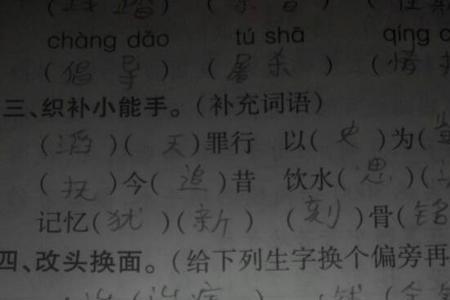 chàng dǎo tú shā qíng
(倡 导) (屠 杀) (情
三、织补小能手。(补充词语)
(滔)(天)罪行 以(史)为(
(抚)今(追)昔 饮水(思)(
记忆(犹)(新) (刻)骨(铭
四、改头换面。(给下列生字换个偏旁再